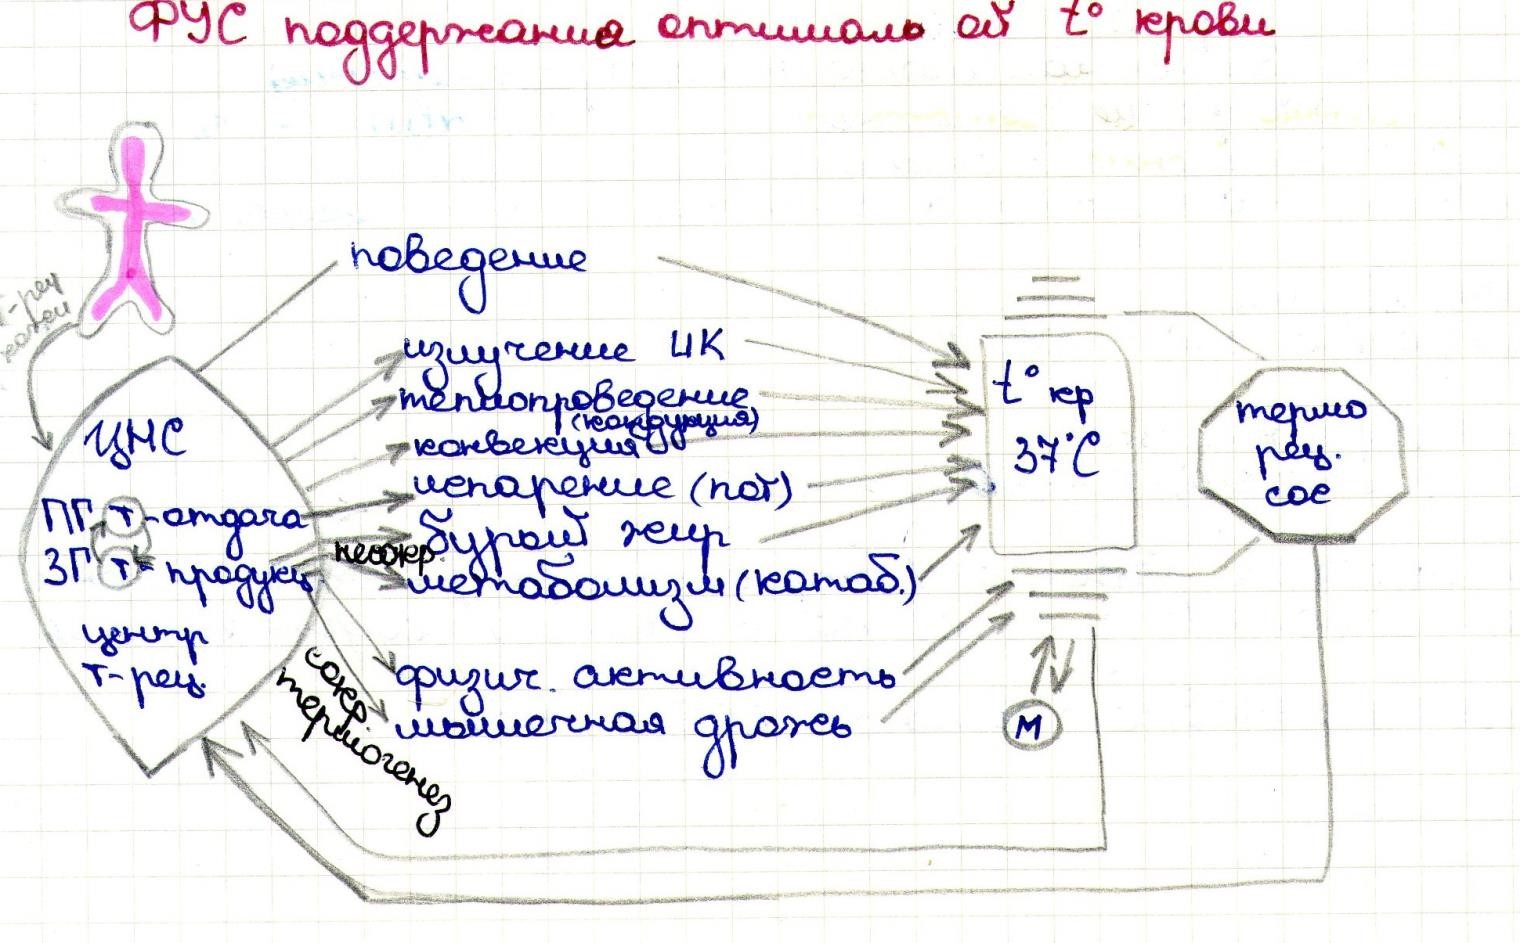 ФУС поддержания оптималь ой t° крови
поведение
Т-рец
кожи
излучение ИК
теплопроведение
(кондукция)
конвекция
испарение (пот)
бурый жир
несокр.
метаболизм (катаб.)
физич. активность
мышечная дрожь
сокр.
термогенез
ЦНС
ПГ т-отдача
ЗГ т-продукц
центр
т-рец.
t° кр
37°C
термо
рец.
сос
М